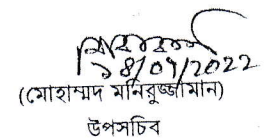 ১৪/০৭/2022
(মোহাম্মদ মনিরুজ্জামান)
উপসচিব